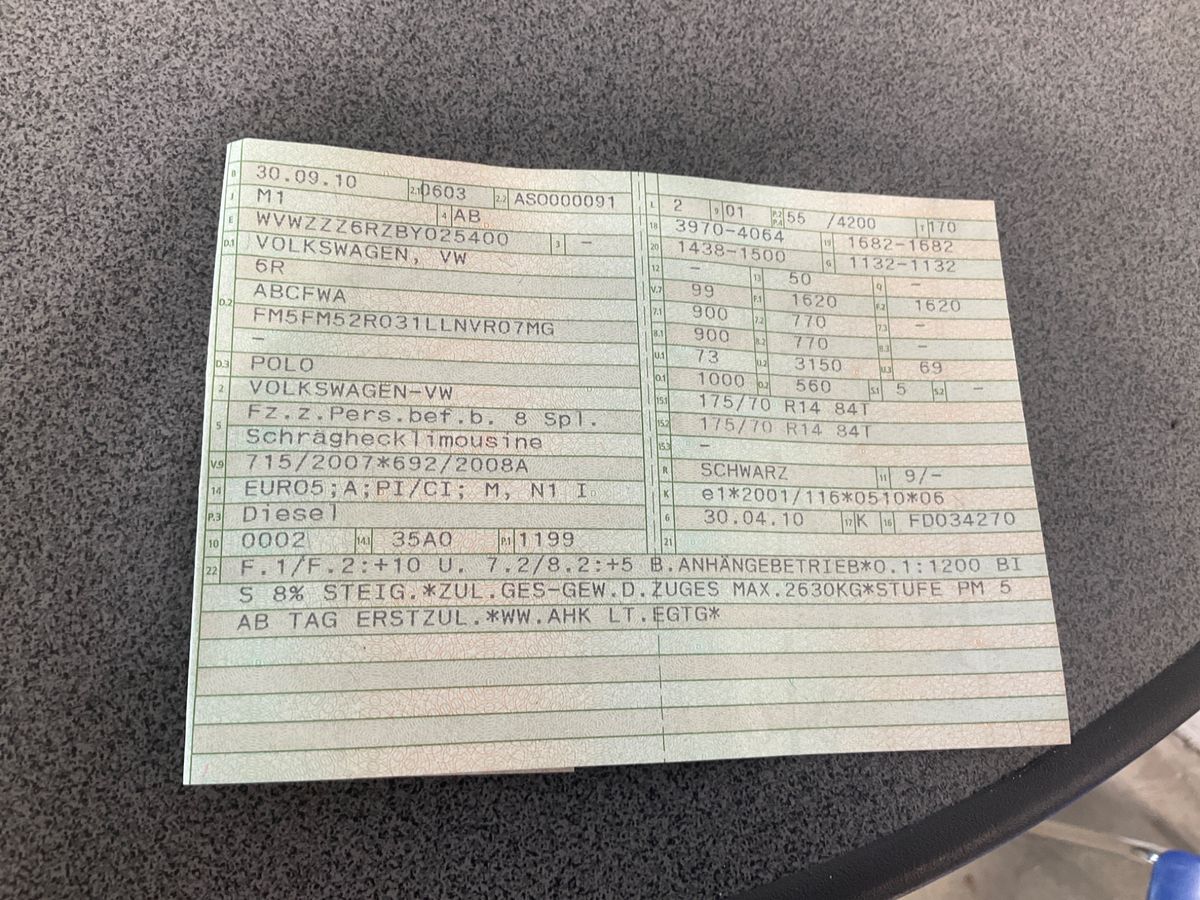 B 30.09.10 2.1 0603 2.2 ASO000091
J M1 4 AB
E WVWZZZ6RZBY025400 3 –
D.1 VOLKSWAGEN, VW
6R
D.2 ABCFWA
FM5FM52R031LLNVR07MG
–
D.3 POLO
2 VOLKSWAGEN-VW
5 Fz.z.Pers.bef.b. 8 Spl.
Schräghecklimousine
V.9 715/2007*692/2008A
14 EURO5;A;PI/CI; M, N1 I
P.3 Diesel
10 0002 14.1 35A0 P.1 1199
L 2 9 01 P.2 P.4 55 /4200 T 170
18 3970-4064 19 1682-1682
20 1438-1500 G 1132-1132
12 – 13 50 Q –
V.7 99 F.1 1620 F.2 1620
7.1 900 7.2 770 7.3 –
8.1 900 8.2 770 8.3 –
U.1 73 U.2 3150 U.3 69
O.1 1000 O.2 560 S.1 5 S.2 –
15.1 175/70 R14 84T
15.2 175/70 R14 84T
15.3 –
R SCHWARZ 11 9/-
K e1*2001/116*0510*06
6 30.04.10 17 K 16 FD034270
21
22 F.1/F.2:+10 U. 7.2/8.2:+5 B.ANHÄNGEBETRIEB*O.1:1200 BI
S 8% STEIG.*ZUL.GES-GEW.D.ZUGES MAX.2630KG*STUFE PM 5
AB TAG ERSTZUL.*WW.AHK LT.EGTG*